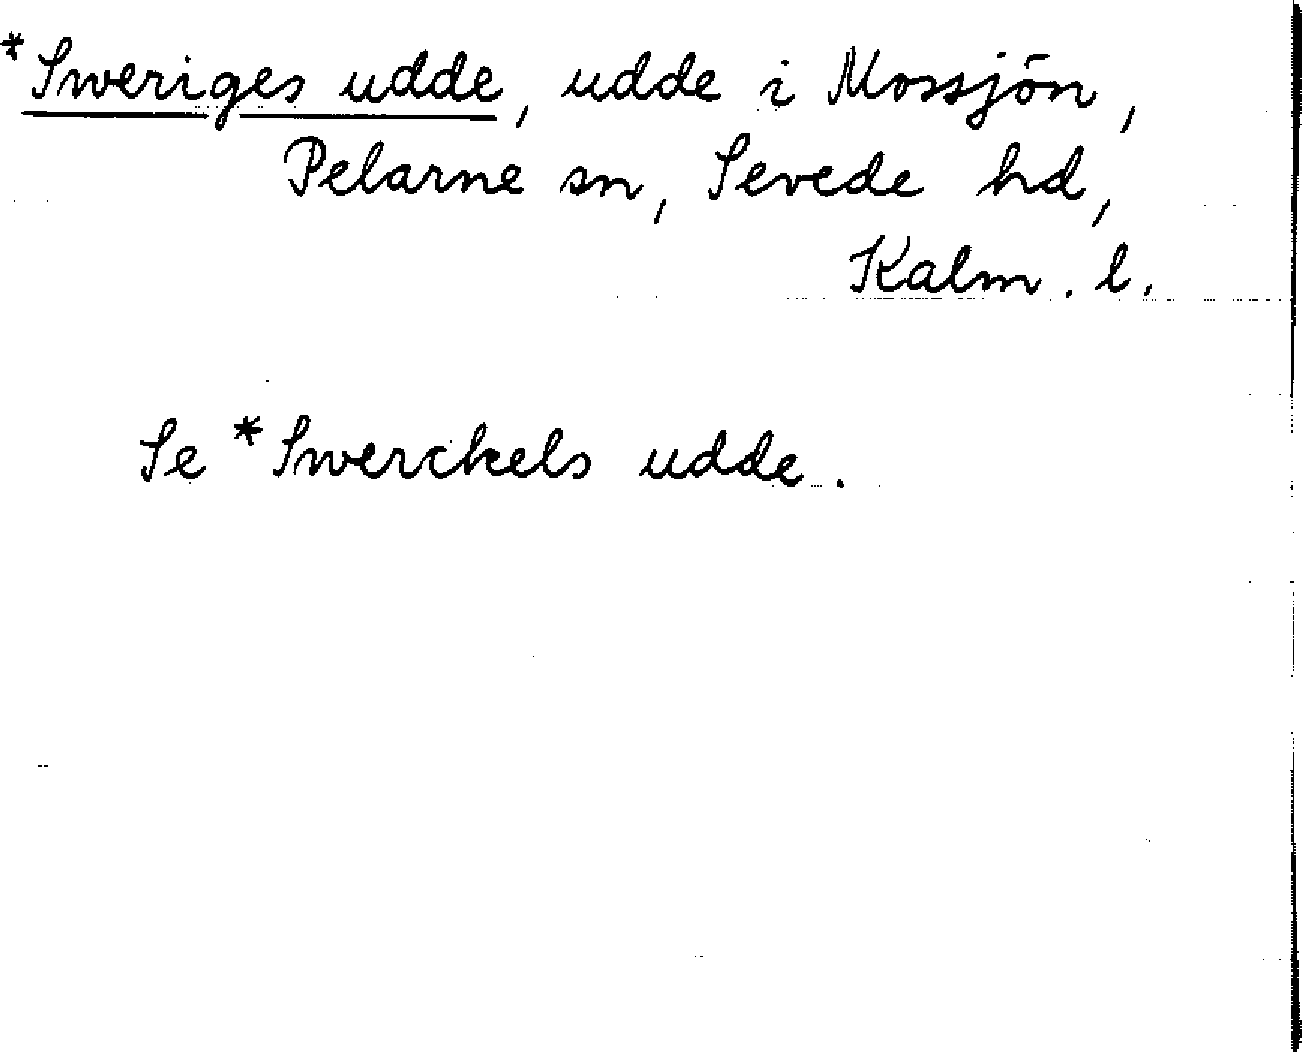 *Sweriges udde, udde i Mossjön,
Pelarne sn, Sevede hd,
Kalm. l.
Se *Swerckels udde.